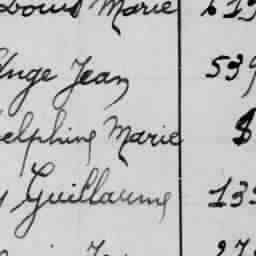 Louis Marie 613
Ange Jean 539
elphine Marie 8
Guillaume 133